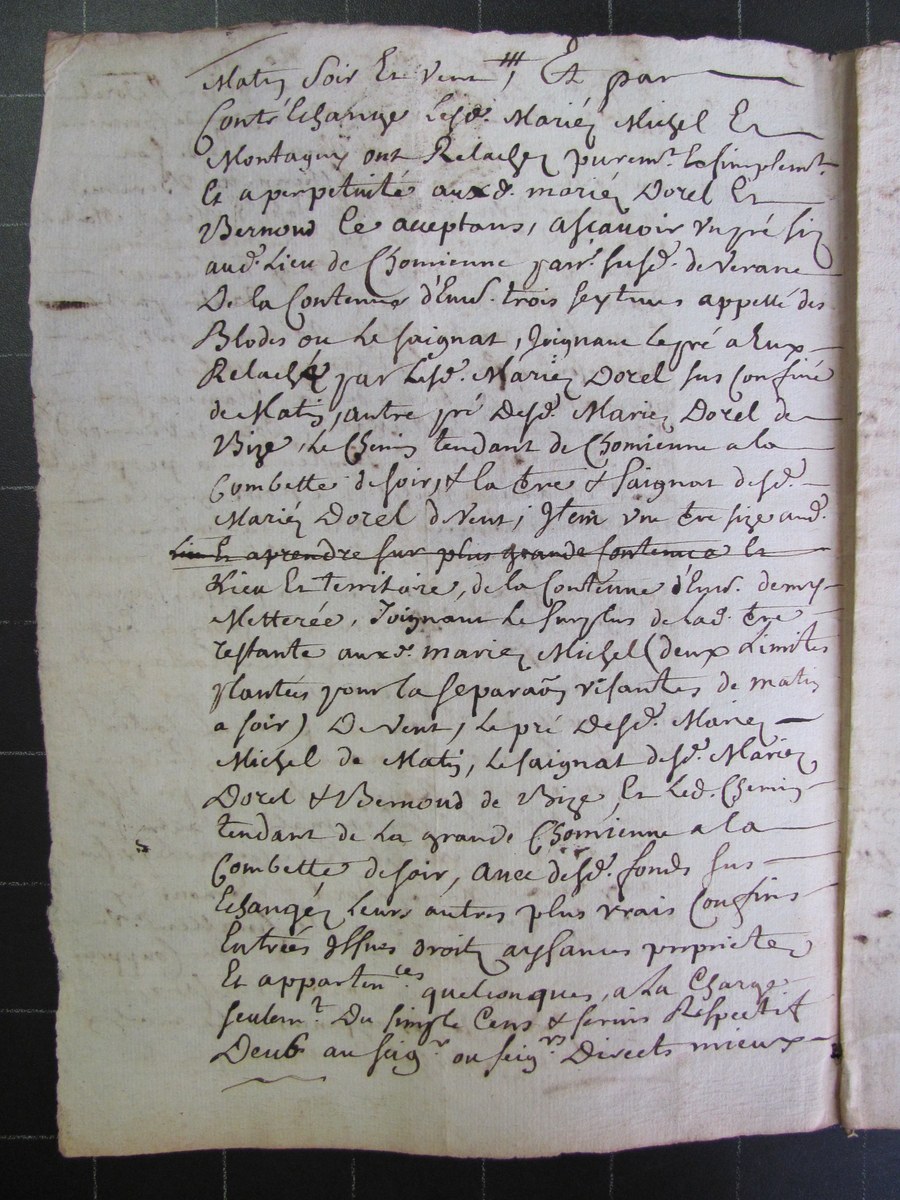 Matin Soir Et vent, Et par
Contr'Echange lesd. Mariéz Michel Et
Montagny ont Relachez purem.t & simplem.t
Et a perpetuité auxd. mariéz Dorel Et
Bernoud Ce acceptans, ascavoir un pré siz
aud. Lieu de Chomienne parr.e susd. de verane
De la Contenue d'Env. trois seytives appellé des
Blodes ou Le saignat, Joignant le pré a Eux
Relaché par lesd. Mariéz Dorel sus confiné
de Matin, autre pré Desd. Mariéz Dorel de
Bize, Le Chemin tendant de Chomienne a la
Combette de soir, & la terre & saignat desd.
Mariéz Dorel de vent; Item une terre size aud.
Lieu Et aprendre sur plus grande Contenue Et
Lieu Et territoire, de la Contenue d'Env. demy
Metterée, Joignant Le surplus de lad. terre
restante auxd. mariéz Michel (deux Limites
plantées pour la separaõn visantes de matin
a soir) De vent, Le pré Desd. Mariéz
Michel de Matin, Le saignat desd. Mariéz
Dorel & Bernoud de Bize, Et Led. Chemin
tendant de La grande Chomienne a la
Combette de soir, avec desd. fonds sus
Echangéz Leurs autres plus vrais Confins
Entrées Issues droitz aysances proprietez
Et appartin.ces quelconques, a La Charge
seulem.t Du simple Cens & servis Respectif
Deub au seig.r ou seig.rs Directs mieux